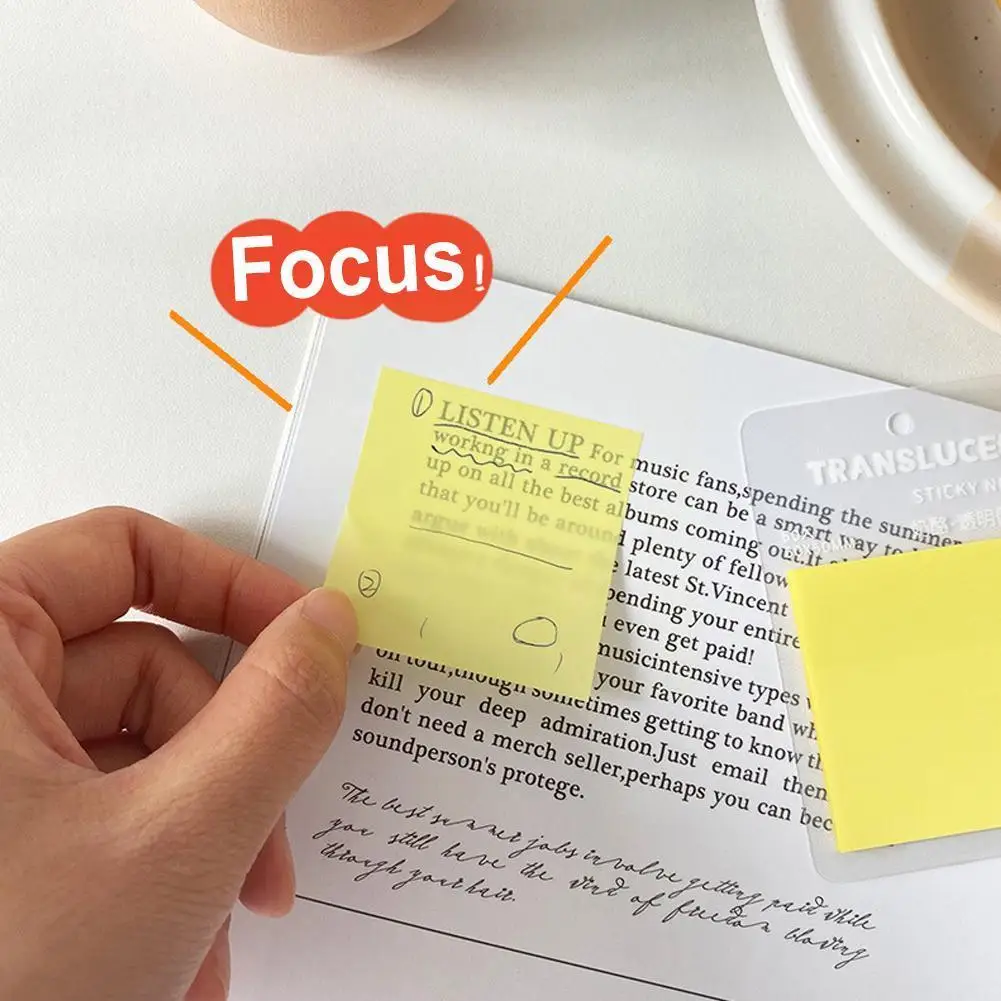 Focus!
① LISTEN UP For music fans,spending the summer
workng in a record store can be a smart way to
up on all the best albums coming out.It
that you'll be around plenty of fellow
argue with about the latest St.Vincent
pending your entire
even get paid!
②
musicintensive types
on tour,though sometimes getting to know th
kill your deep your favorite band wh
don't need a admiration.Just email then
soundperson's merch seller,perhaps you can bec
protege.
The best summer jobs involve getting paid while
you still have the wind of freedom blowing
through your hair.
TRANSLUCE
STICKY N
透明